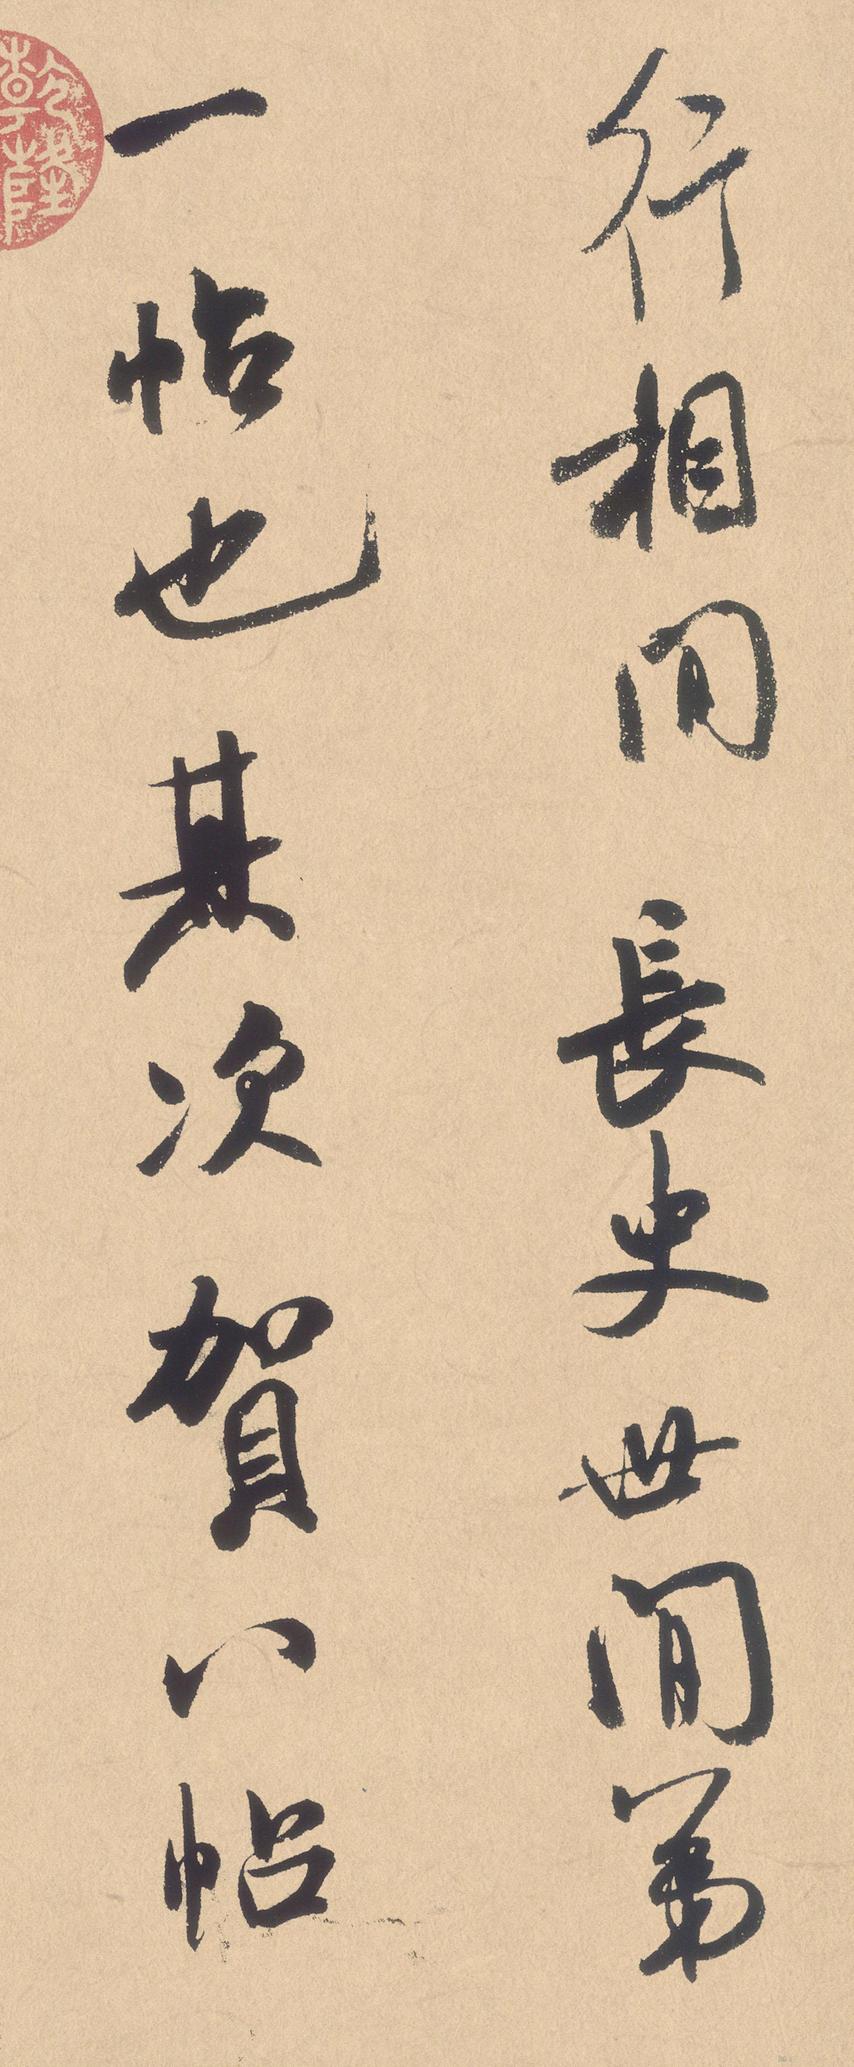 行相間長史世間第
一帖也其次賀八帖